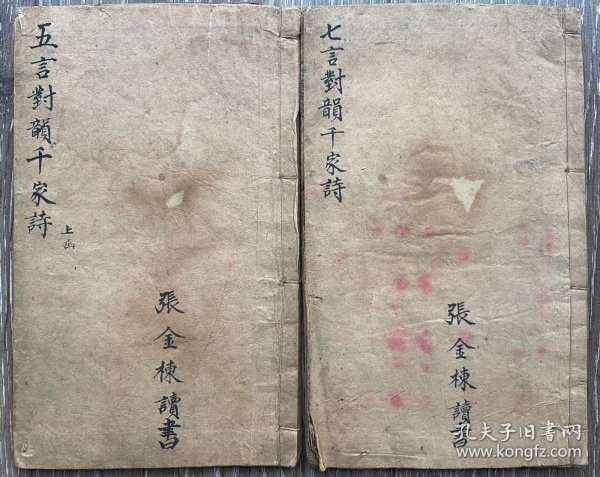 五言對韻千家詩
上函
張金棟讀書
七言對韻千家詩
張金棟讀書
孔夫子旧书网
www.kongfz.com